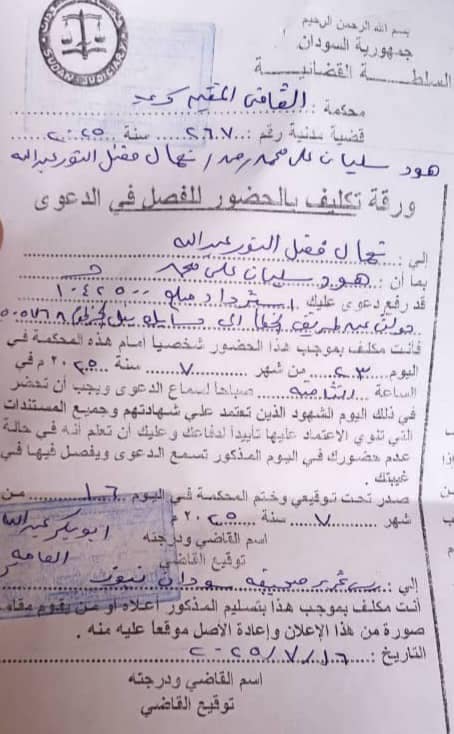 SUDAN JUDICIARY
بسم الله الرحمن الرحيم
جمهورية السودان
السلطة القضائية
محكمة : القاضي المقيم
قضية مدنية رقم : ٢٦٠٧ سنة ٢٠٢٥
هود سليمان علي محمد / ضد / نهال فضل النور عبدالله
ورقة تكليف بالحضور للفصل في الدعوى
إلي : نهال فضل النور عبدالله
بما أن : هود سليمان علي محمد
قد رفع دعوى عليك استرداد مبلغ ١٠٤٢٥٠٠
حولت عن طريق الخطأ إلى حسابك
فأنت مكلف بموجب هذا الحضور شخصيا أمام هذه المحكمة في
اليوم ٢٣ من شهر ٧ سنة ٢٠٢٥ م في
الساعة الثامنة صباحا لسماع الدعوى ويجب أن تحضر
في ذلك اليوم الشهود الذين تعتمد علي شهادتهم وجميع المستندات
التي تنوي الاعتماد عليها تأييدا لدفاعك وعليك أن تعلم أنه في حالة
عدم حضورك في اليوم المذكور تسمع الدعوى ويفصل فيها في
غيبتك .
صدر تحت توقيعي وختم المحكمة في اليوم ١٦ من
شهر ٧ سنة ٢٠٢٥ م
ابوبكر عبدالله
اسم القاضي ودرجته
العامه
توقيع القاضي
إلي : رئيس تحرير صحيفة سودان نيوز
أنت مكلف بموجب هذا بتسليم المذكور أعلاه أو من يقوم مقامه
صورة من هذا الإعلان وإعادة الأصل موقعا عليه منه .
التاريخ : ٢٠٢٥/٧/١٦
اسم القاضي ودرجته
توقيع القاضي